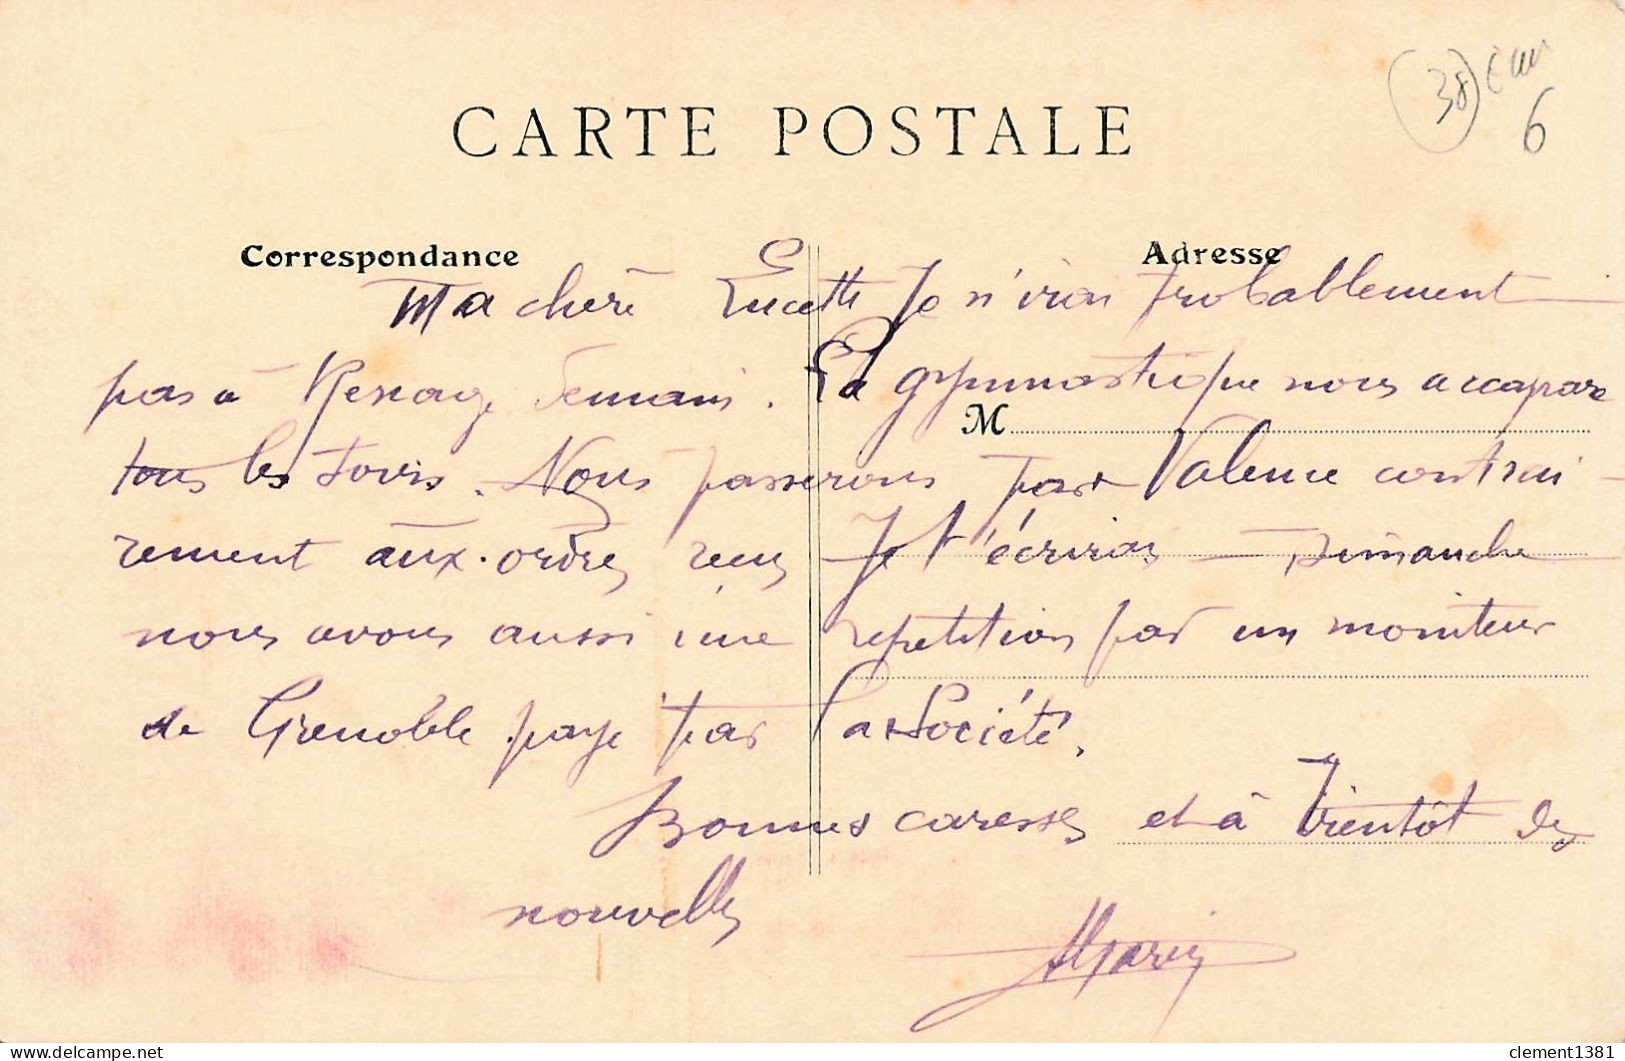 38
6
CARTE POSTALE
Correspondance
Adresse
Ma chère Lucette Je n'irai probablement
pas à Renage demain. La gymnastique nous accapare
M
tous les soirs. Nous passerons par Valence contrai
rement aux ordres reçus Je t'écrirai — Dimanche
nous avons aussi une repetition par un moniteur
de Grenoble payé par la Société.
Bonnes caresses et à bientôt des
nouvelles
clement1381